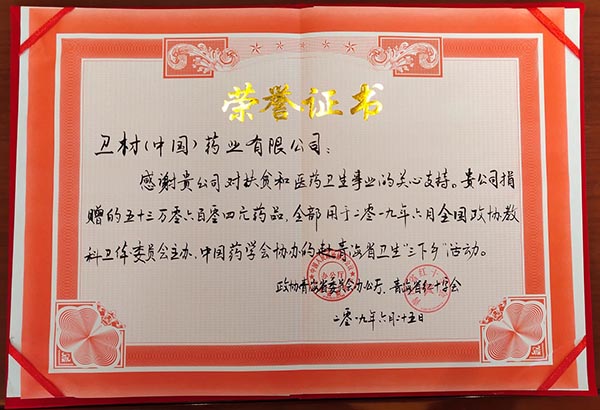 荣誉证书
卫材(中国)药业有限公司:
感谢贵公司对扶贫和医药卫生事业的关心支持。贵公司捐
赠的五十三万零六百零四元药品,全部用于二零一九年六月全国政协教
科卫体委员会主办、中国药学会协办的赴青海省卫生“三下乡”活动。
政协青海省委员会办公厅、青海省红十字会
二零一九年六月二十五日